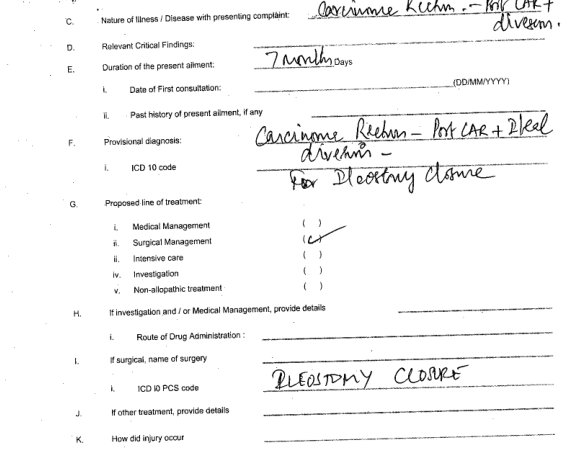 C. Nature of Illness / Disease with presenting complaint: Carcinoma Rectum - Post LAR +
diversion.
D. Relevant Critical Findings:
E. Duration of the present ailment: 7 months Days
i. Date of First consultation: (DD/MM/YYYY)
ii. Past history of present ailment, if any
F. Provisional diagnosis: Carcinoma Rectum - Post LAR + Ileal
diversion -
i. ICD 10 code
For Ileostomy closure
G. Proposed line of treatment:
i. Medical Management ( )
ii. Surgical Management (✓)
ii. Intensive care ( )
iv. Investigation ( )
v. Non-allopathic treatment ( )
H. If investigation and / or Medical Management, provide details
i. Route of Drug Administration :
I. If surgical, name of surgery
ILEOSTOMY CLOSURE
i. ICD I0 PCS code
J. If other treatment, provide details
K. How did injury occur